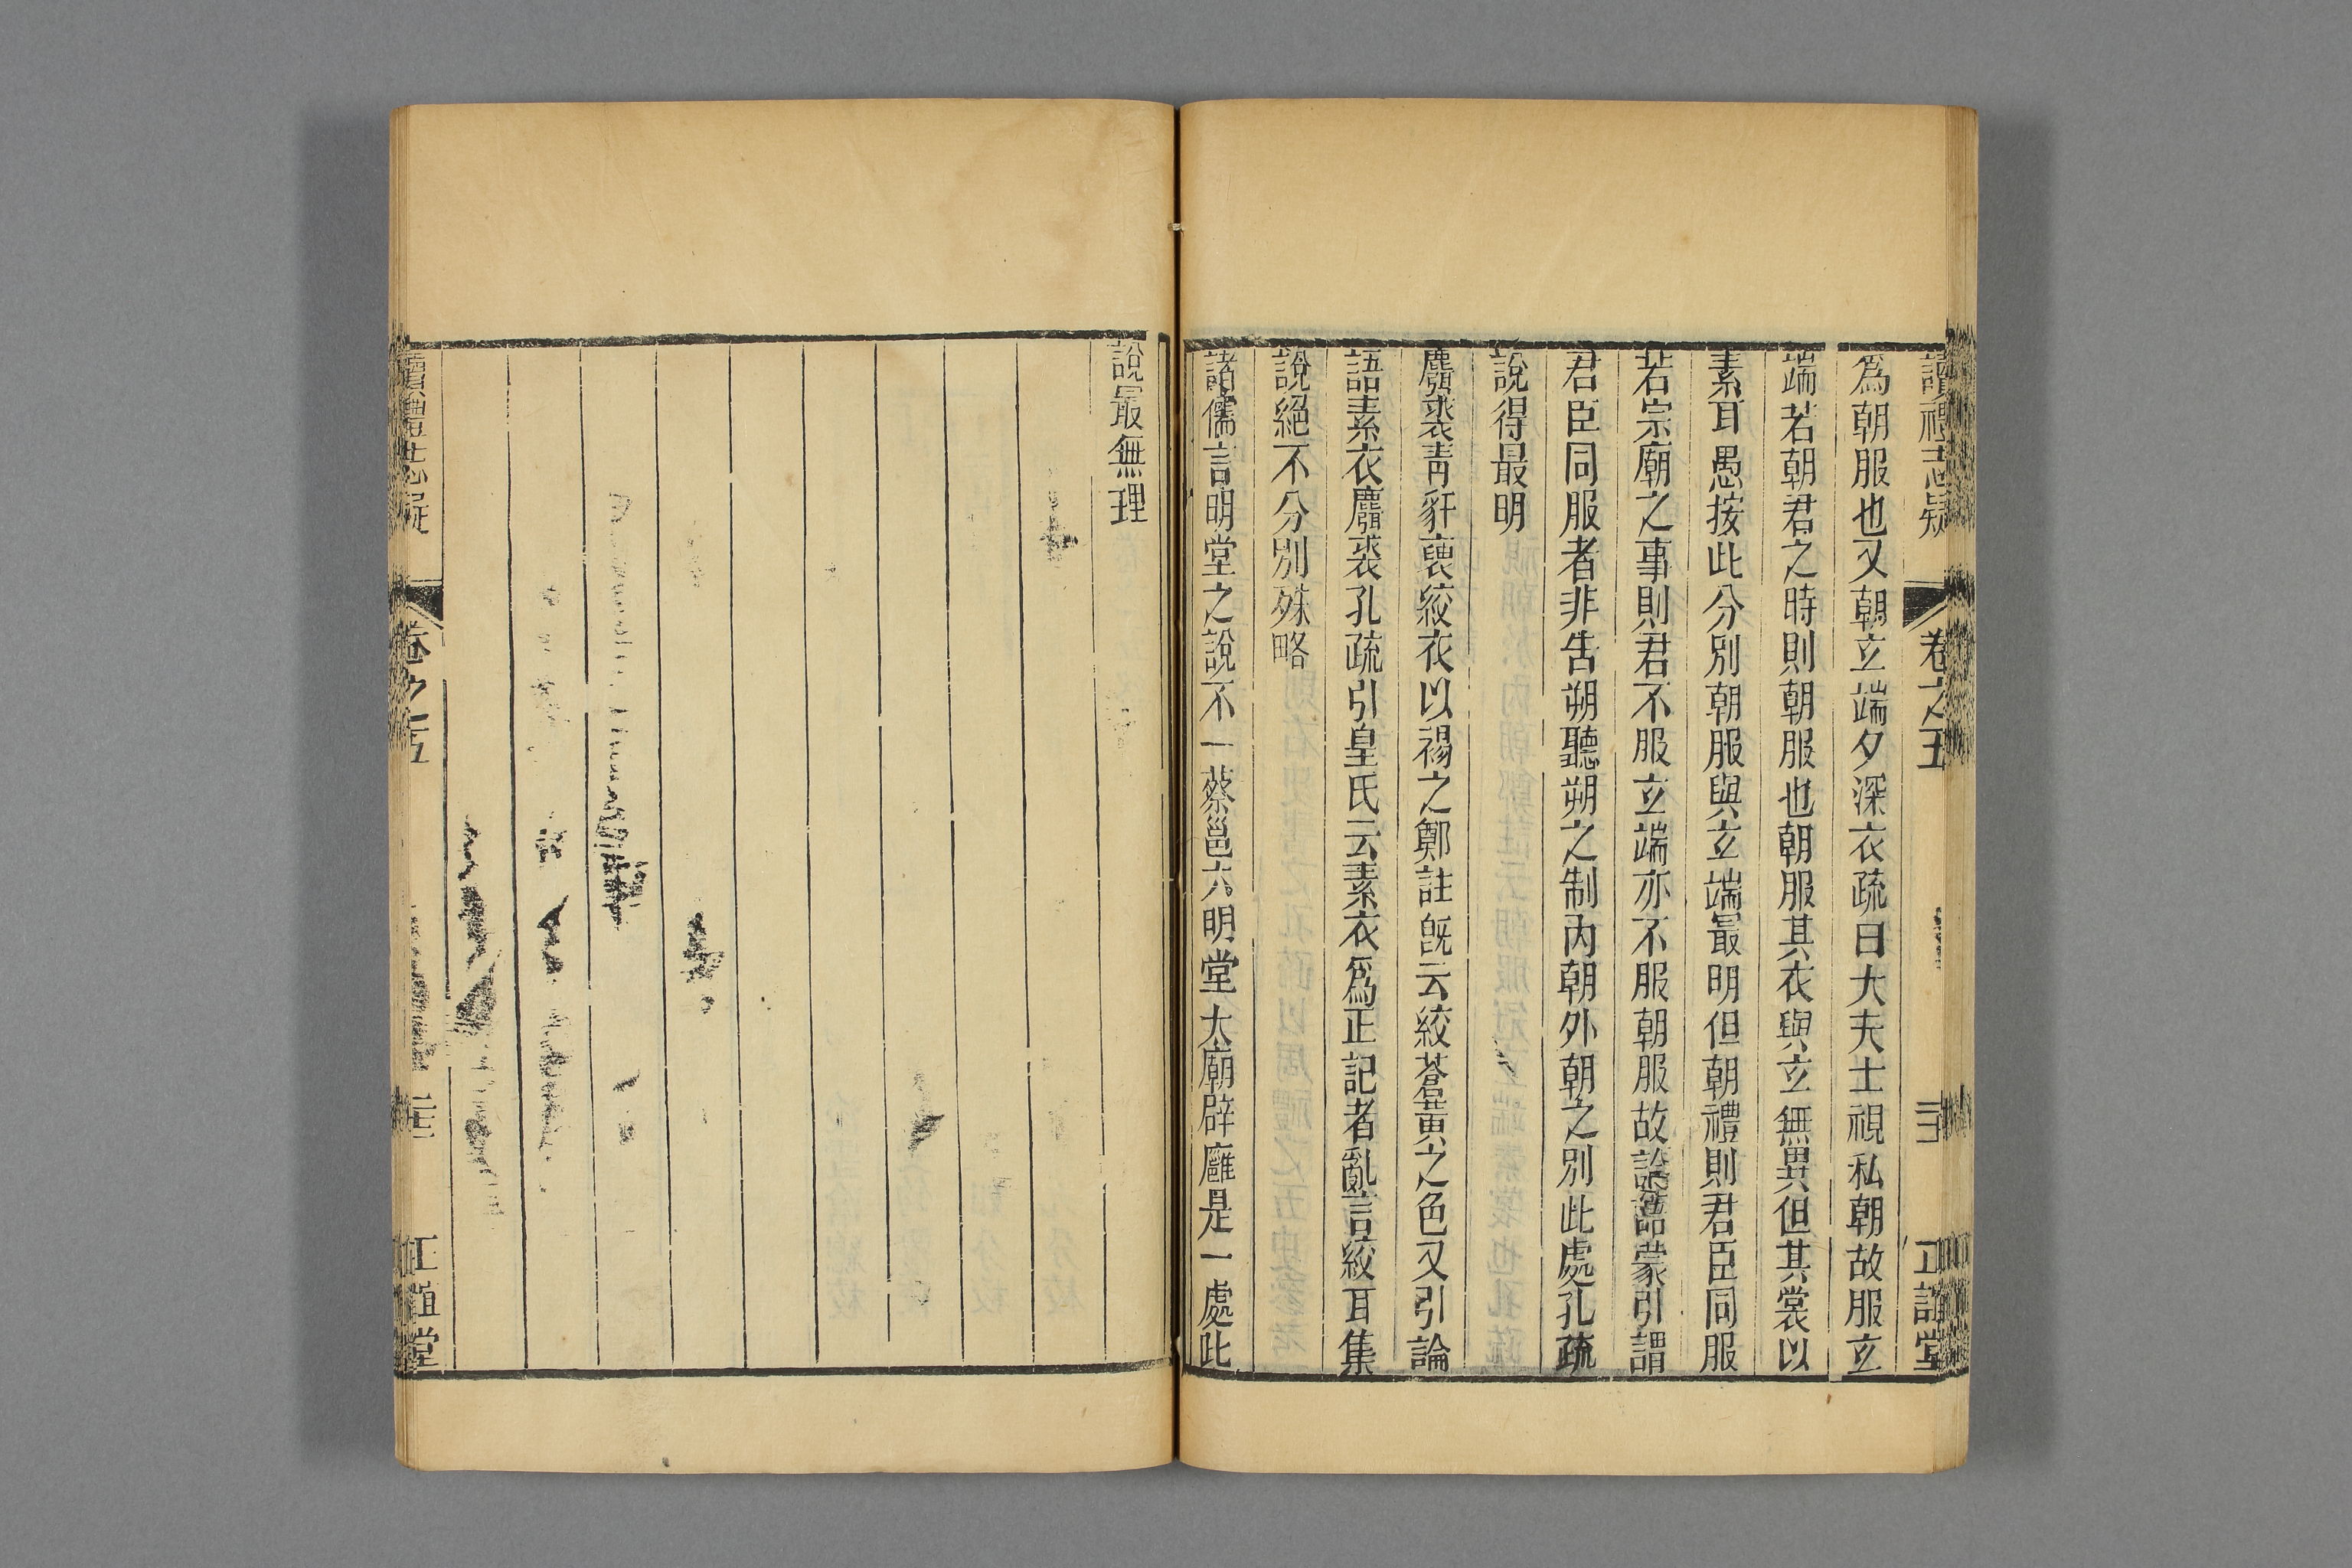 讀禮志疑 卷之五 正誼堂
爲朝服也又朝立端夕深衣疏曰大夫士視私朝故服立
端若朝君之時則朝服也朝服其衣與立無異但其裳以
素耳愚按此分別朝服與立端最明但朝禮則君臣同服
若宗廟之事則君不服立端亦不服朝服故論語蒙引謂
君臣同服者非告朔聽朔之制內朝外朝之別此處孔疏
說得最明
麛裘青豻褎絞衣以裼之鄭註旣云絞蒼黃之色又引論
語素衣麛裘孔疏引皇氏云素衣爲正記者亂言絞耳集
說絕不分別殊略
諸儒言明堂之說不一蔡邕六明堂太廟辟廱是一處此
說最無理
讀禮志疑 卷之五 正誼堂